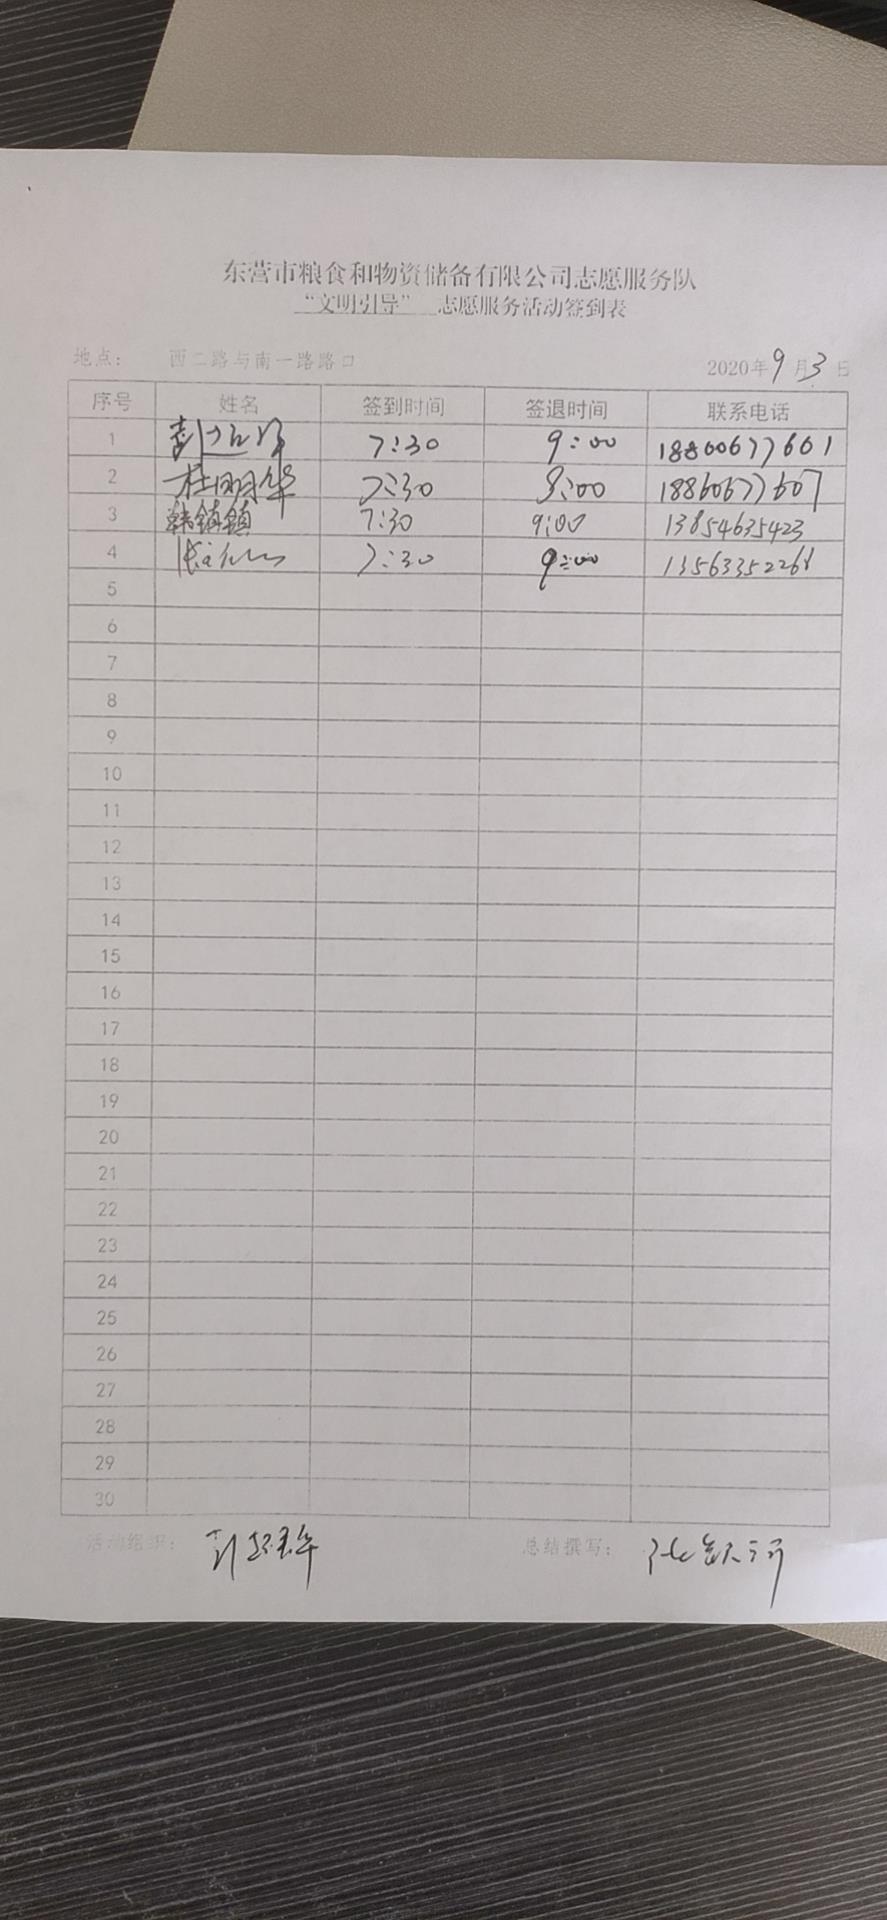 东营市粮食和物资储备有限公司志愿服务队
“文明引导” 志愿服务活动签到表
地点： 西二路与南一路路口 2020年9月3日
序号 姓名 签到时间 签退时间 联系电话
1 7:30 9:00 18800677601
2 杜明华 7:30 9:00 18860677607
3 韩镇镇 7:30 9:00 13854635423
4 7:30 9:00 13563352268
5
6
7
8
9
10
11
12
13
14
15
16
17
18
19
20
21
22
23
24
25
26
27
28
29
30
活动组织： 总结撰写：